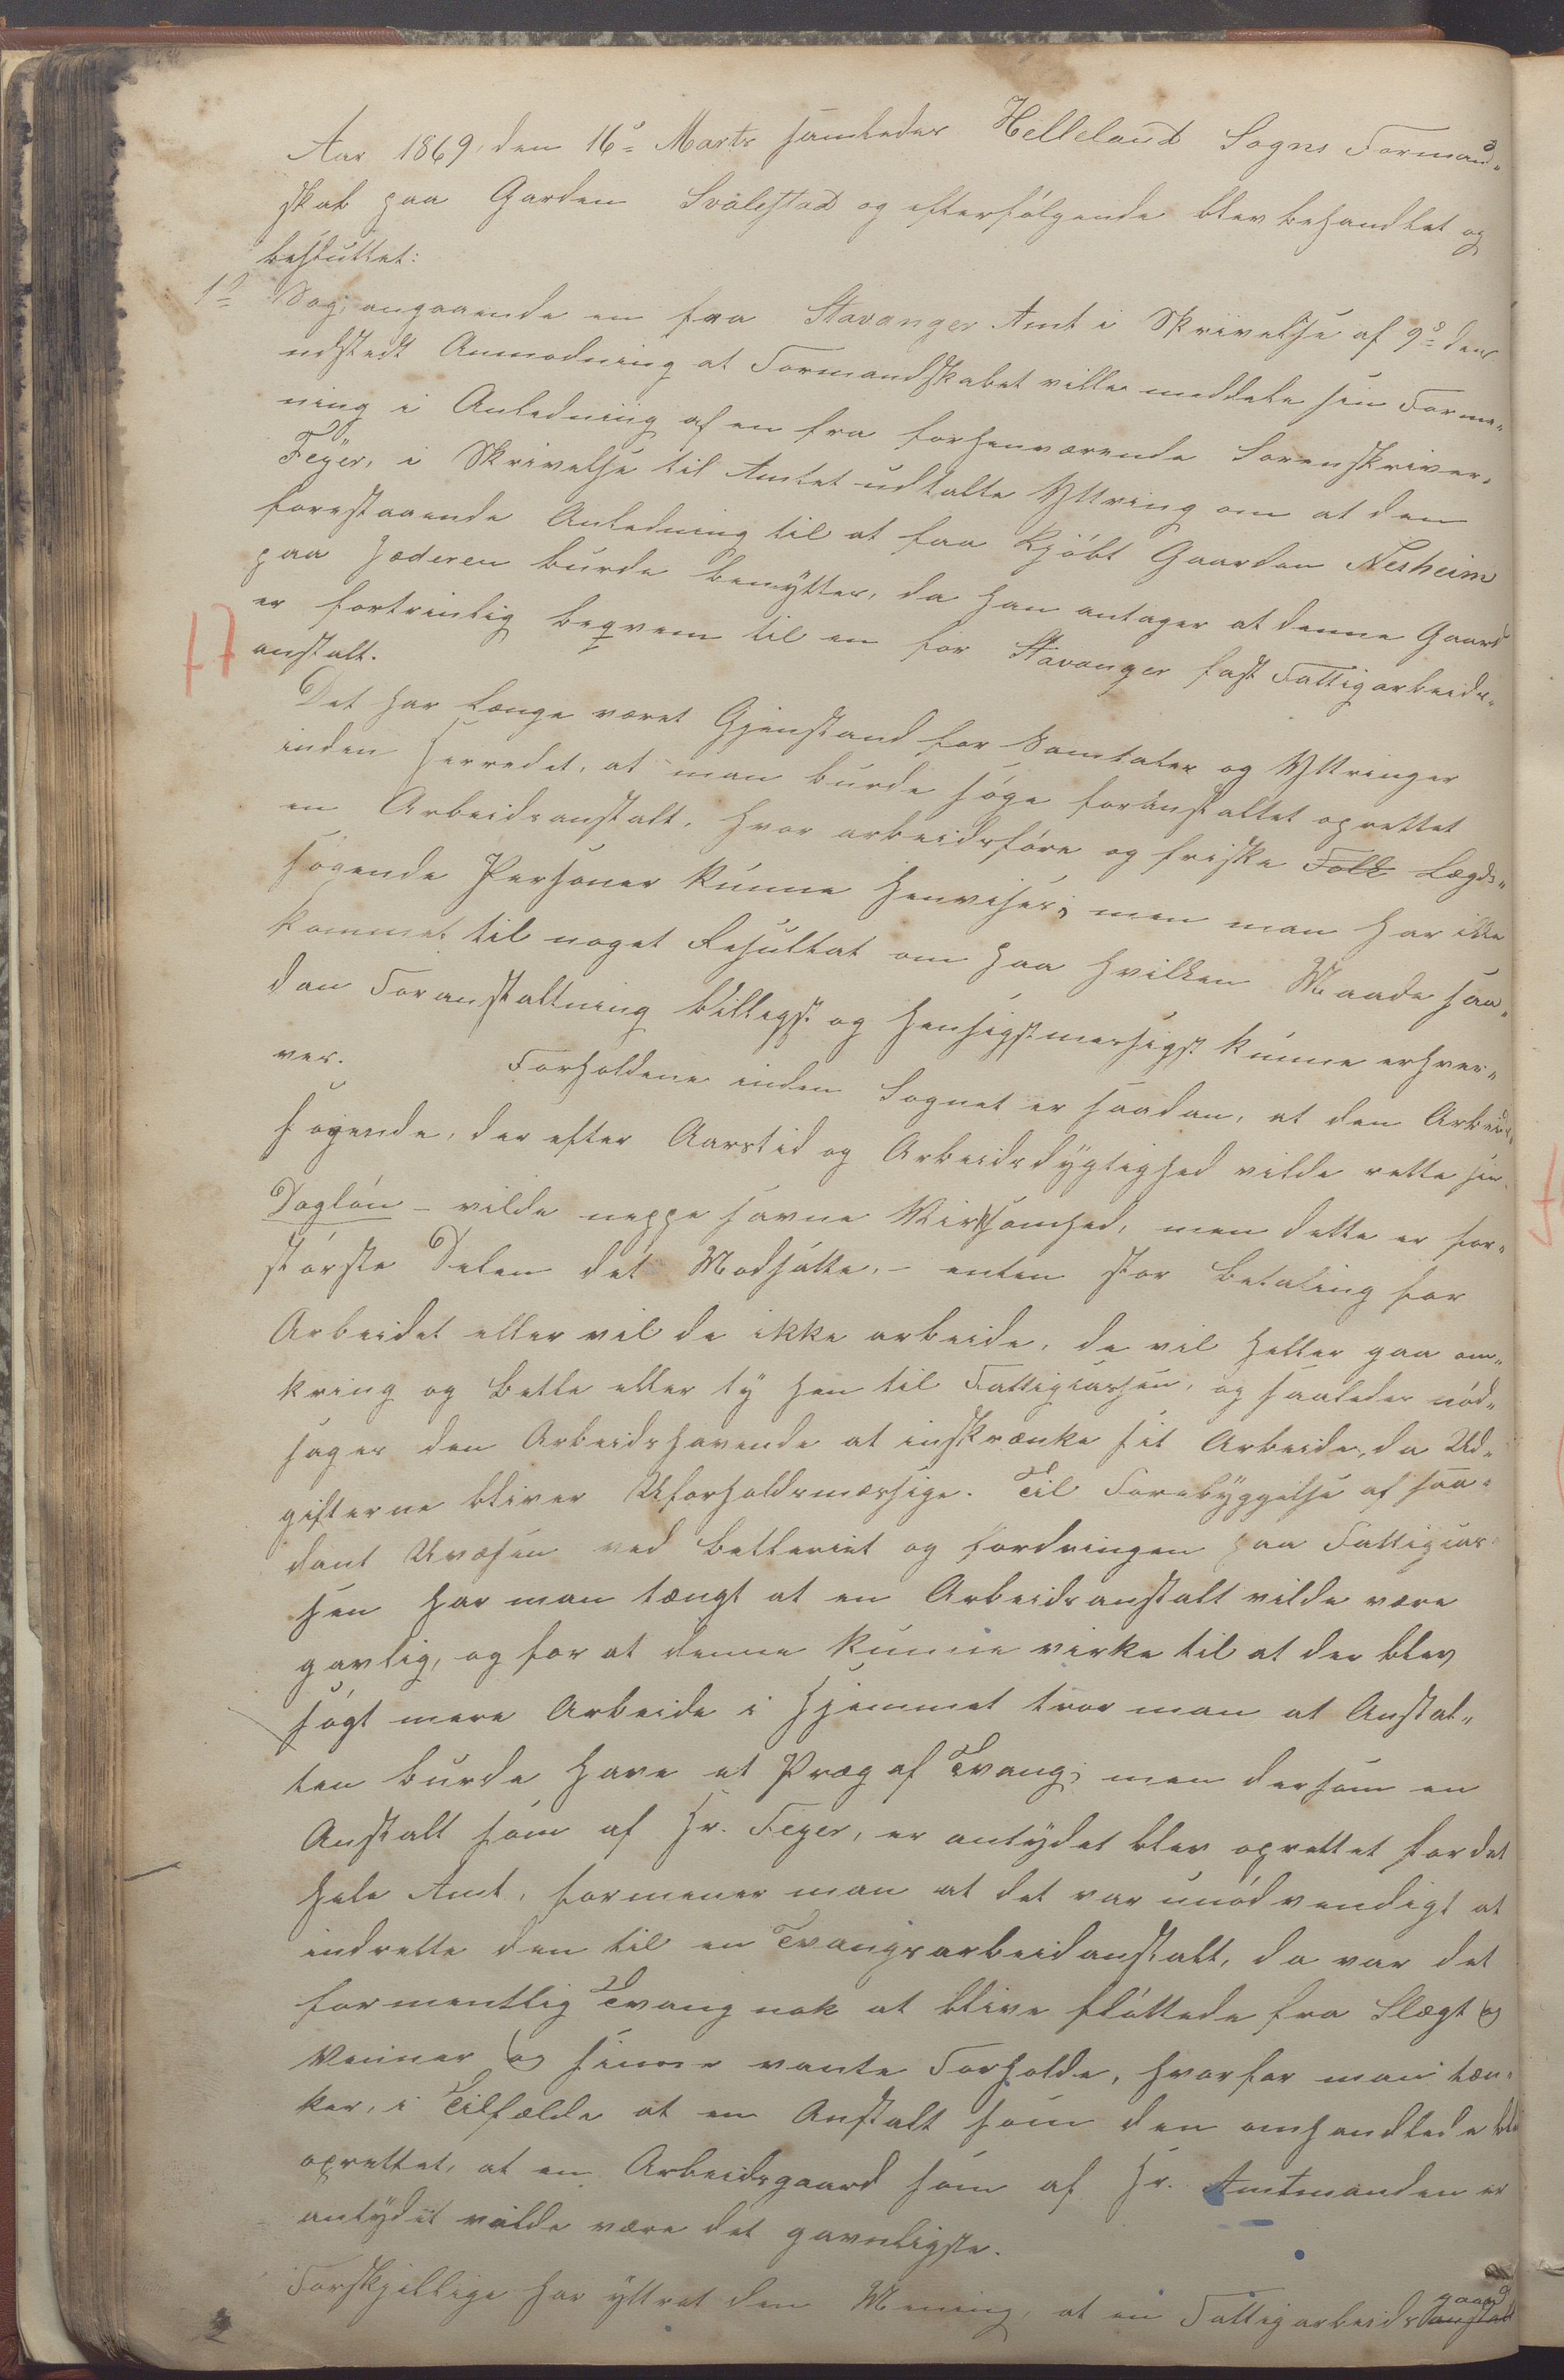 Aar 1869, den 16de Marts samledes Helleland Sogns Formand-
skab paa Garden Svålestad og efterfølgende blev behandlet og
besluttet:
1o Sag, angaaende en fra Stavanger Amt i Skrivelse af 9de dens
udstedt Anmodning at Formandskabet ville meddele sin Forme-
ning i Anledning af en fra forhenværende Sorenskriver
Feyer, i Skrivelse til Amtet udtalte Yttring om at den
forestaaende Anledning til at faa kjøbt Gaarden Nesheim
paa Jæderen burde benyttes, da han antager at denne Gaard
er fortrinlig beqvem til en for Stavanger fast Fattigarbeids-
anstalt.
Det har længe været Gjenstand for Samtaler og Yttringer
inden Herredet, at man burde søge foranstaltet oprettet
en Arbeidsanstalt, hvor arbeidsføre og friske Folk Lægds-
søgende Personer kunne henvises; men man har ikke
kommet til noget Resultat om paa hvilken Maade saa-
dan Foranstaltning billigst og hensigtsmæssigst kunne erhver-
ves. Forholdene inden Sognet er saadan, at den Arbeids-
søgende, der efter Aarstid og Arbeidsdygtighed vilde rette sin
Dagløn - vilde neppe savne Virksomhed, men dette er for
største Delen det Modsatte, - enten stor Betaling for
Arbeidet eller vil de ikke arbeide, de vil heller gaa om-
kring og betle eller ty hen til Fattigcassen, og saaledes nød-
sages den Arbeidshavende at inskrænke sit Arbeide, da Ud-
gifterne bliver Uforholdsmæssige. Til Forebyggelse af saa-
dant Uvæsen ved Betleriet og fordringen paa Fattigcas-
sen har man tængt at en Arbeidsanstalt vilde være
gavlig, og for at denne kunne virke til at der blev
søgt mere Arbeide i Hjemmet tror man at Anstal-
ten burde have et Præg af Tvang; men dersom en
Anstalt som af Hr. Feyer, er antydet blev oprettet for det
hele Amt, formener man at det var unødvendigt at
indrette den til en Tvangsarbeidanstalt, da var det
formentlig Tvang nok at blive fløttede fra Slægt og
Venner og sinne vante Forholde, hvorfor man tæn-
ker, i Tilfælde at en Anstalt som den omhandlede blev
oprettet, at en Arbeidsgaard som af Hr. Amtmanden er
antydet vilde være det gavnligste.
Forskjellige har yttret den Mening, at en Fattigarbeidsanstalt gaard